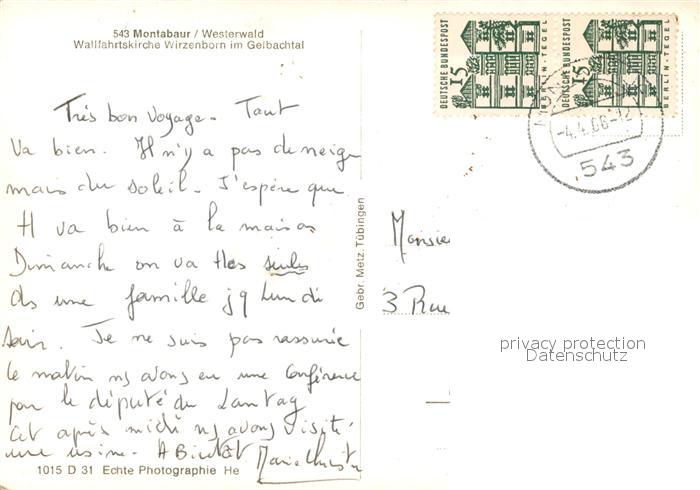 543 Montabaur / Westerwald
Wallfahrtskirche Wirzenborn im Gelbachtal
DEUTSCHE BUNDESPOST
15
BERLIN-TEGEL
DEUTSCHE BUNDESPOST
15
BERLIN-TEGEL
-4.4.66-12
543
Très bon voyage - Tout
va bien. Il n'y a pas de neige
mais du soleil - J'espère que
tt va bien à la maison
Dimanche on va tles seules
ds une famille jq Lundi
soir. Je ne suis pas rassurée
Le matin ns avons eu une conférence
par le député du Lantag
Cet après midi ns avons visité
une usine. A Bientôt Marie Christ
Gebr. Metz, Tübingen
Monsie
3 Rue
privacy protection
Datenschutz
1015 D 31 Echte Photographie He